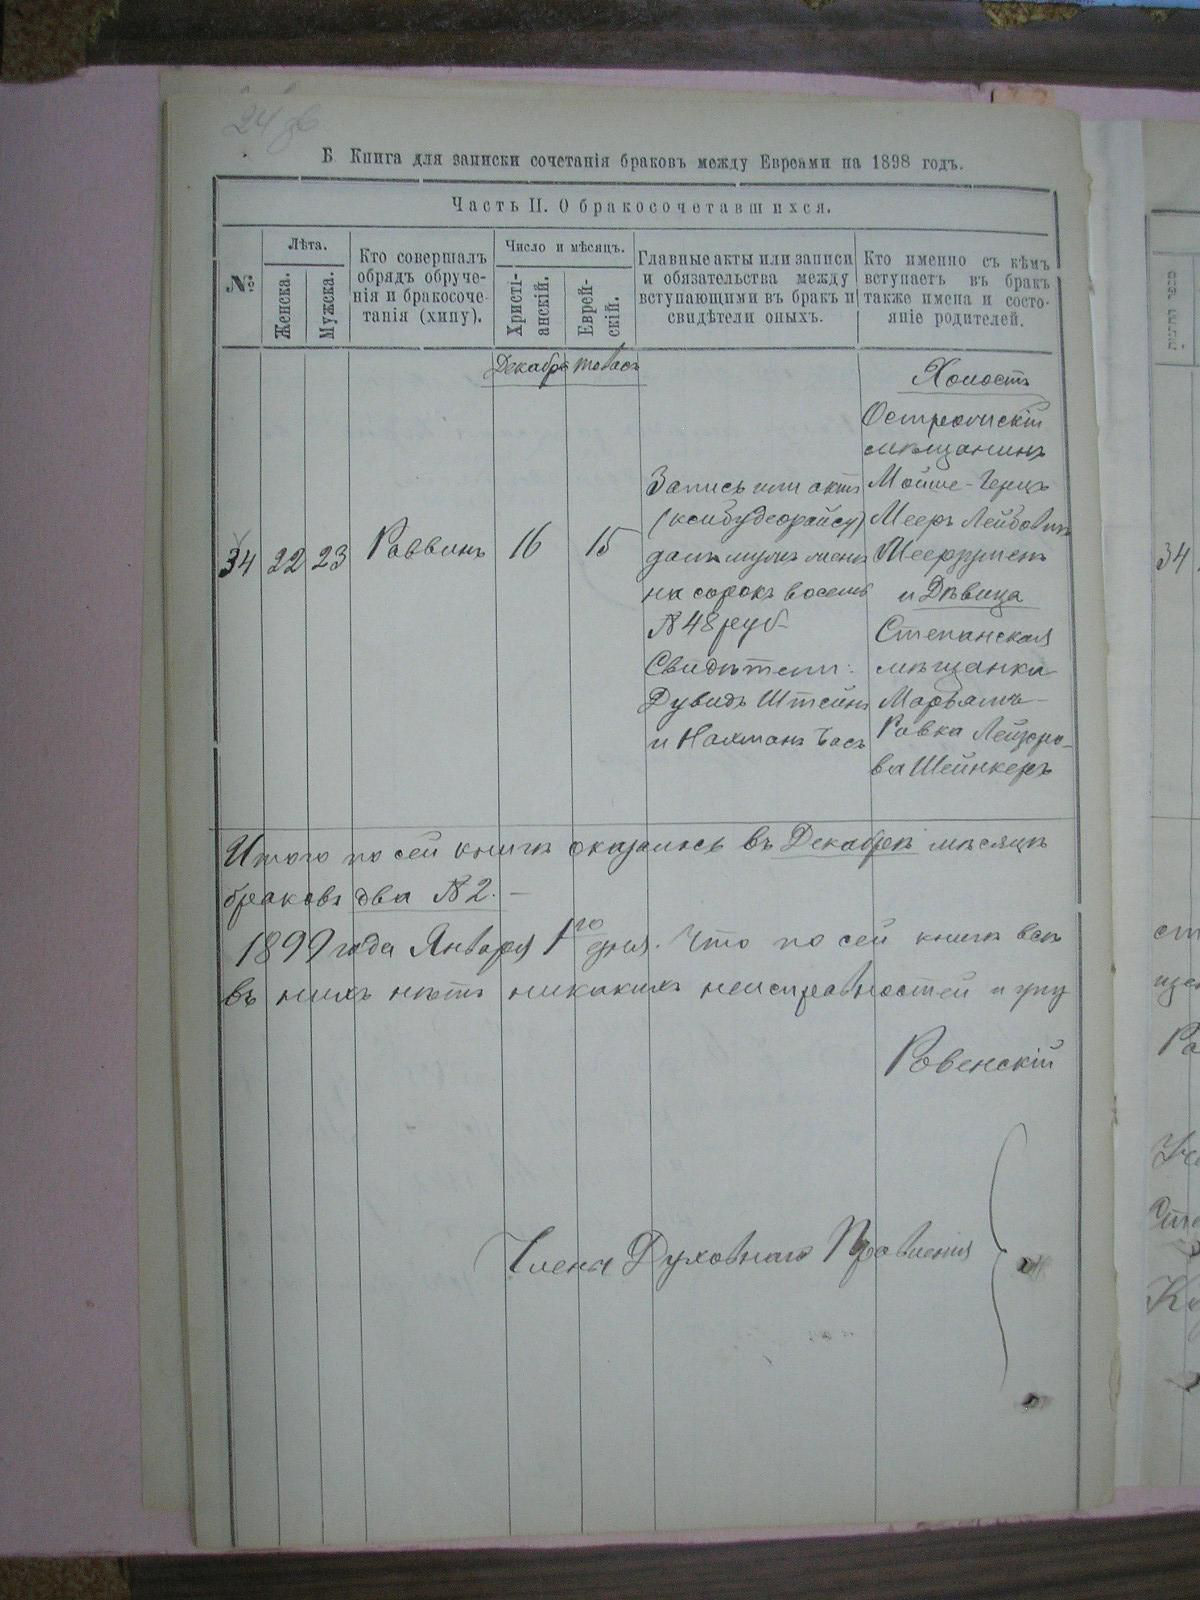 24 об
Б Книга для записки сочетанія браковъ между Евреями на 1898 годъ.
Часть II. О бракосочетавшихся.
№
Лѣта.
Женска.
Мужска.
Кто совершалъ
обрядъ обруче-
нія и бракосоче-
танія (хипу).
Число и мѣсяцъ.
Христі-
анскій.
Еврей-
скій.
Главные акты или записи
и обязательства между
вступающими въ бракъ и
свидѣтели оныхъ.
Кто именно съ кѣмъ
вступаетъ въ бракъ
также имена и состо-
яніе родителей.
Декабрь
34
22
23
Раввинъ
16
15
Запись или актъ
далъ мужъ женѣ
на сорокъ восемь
№ 48 руб-
Свидѣтели:
Дувидъ Штейнъ
и Нахманъ Басъ
Холостъ
мѣщанинъ
Мойше-Герцъ
Мееръ Лейбовичъ
и Дѣвица
Степанская
мѣщанка
Марьямъ-
Ривка Лейзоро-
ва Шейнкеръ
Итого по сей книгѣ оказалось въ Декабрѣ мѣсяцѣ
браковъ два № 2. —
1899 года Января 1го дня. Что по сей книгѣ всѣ
въ нихъ нѣтъ никакихъ неисправностей и упу
Ровенскій
Члена Духовнаго Правленія
34